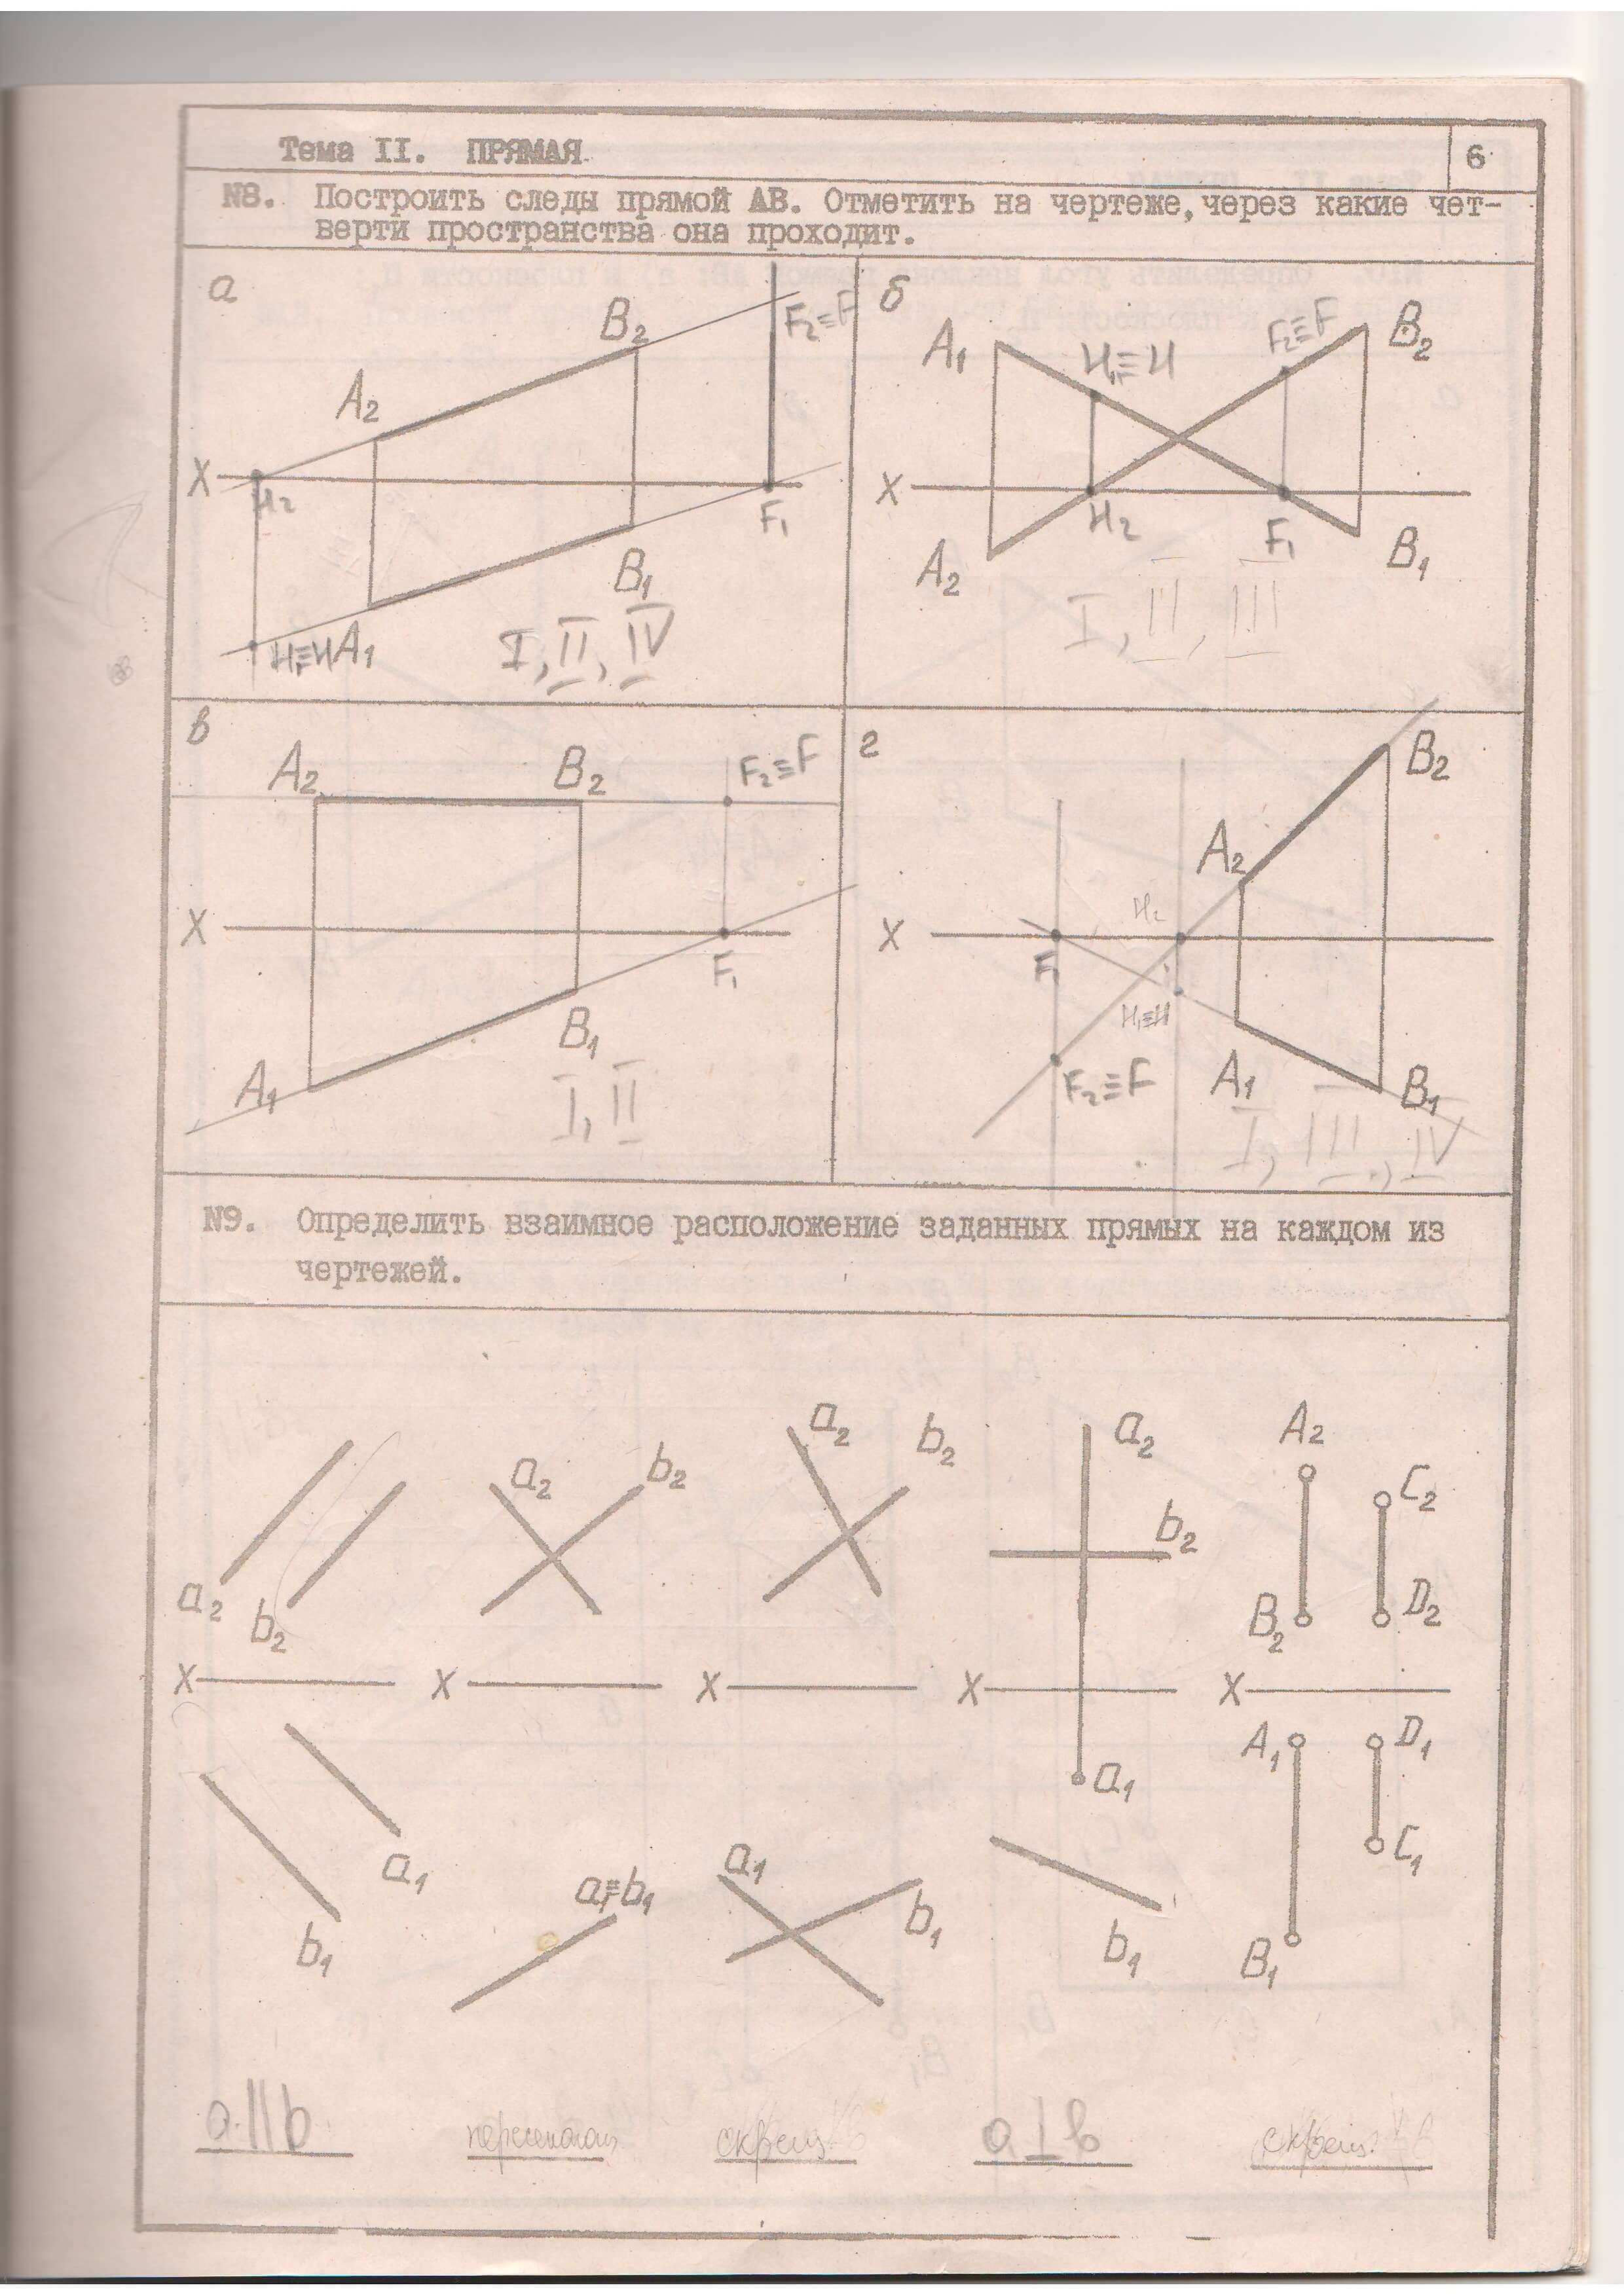 Тема II. ПРЯМАЯ
6
№8. Построить следы прямой АВ. Отметить на чертеже, через какие чет-
верти пространства она проходит.
а
A₂
B₂
F₂≡F
X
H₂
F₁
B₁
H₁≡H A₁
I, II, IV
б
A₁
H₁≡H
F₂≡F
B₂
X
H₂
F₁
A₂
B₁
I, II, III
в
A₂
B₂
F₂≡F
X
F₁
B₁
A₁
I, II
г
B₂
A₂
H₂
X
F₁
H₁≡H
F₂≡F
A₁
B₁
I, III, IV
№9. Определить взаимное расположение заданных прямых на каждом из
чертежей.
a₂ b₂
X
a₁
b₁
a∥b
a₂ b₂
X
a₁≡b₁
a₂ b₂
X
a₁
b₁
скрещ.
a₂
b₂
X
a₁
b₁
a⊥b
A₂
C₂
B₂ D₂
X
A₁ D₁
C₁
B₁
скрещ.